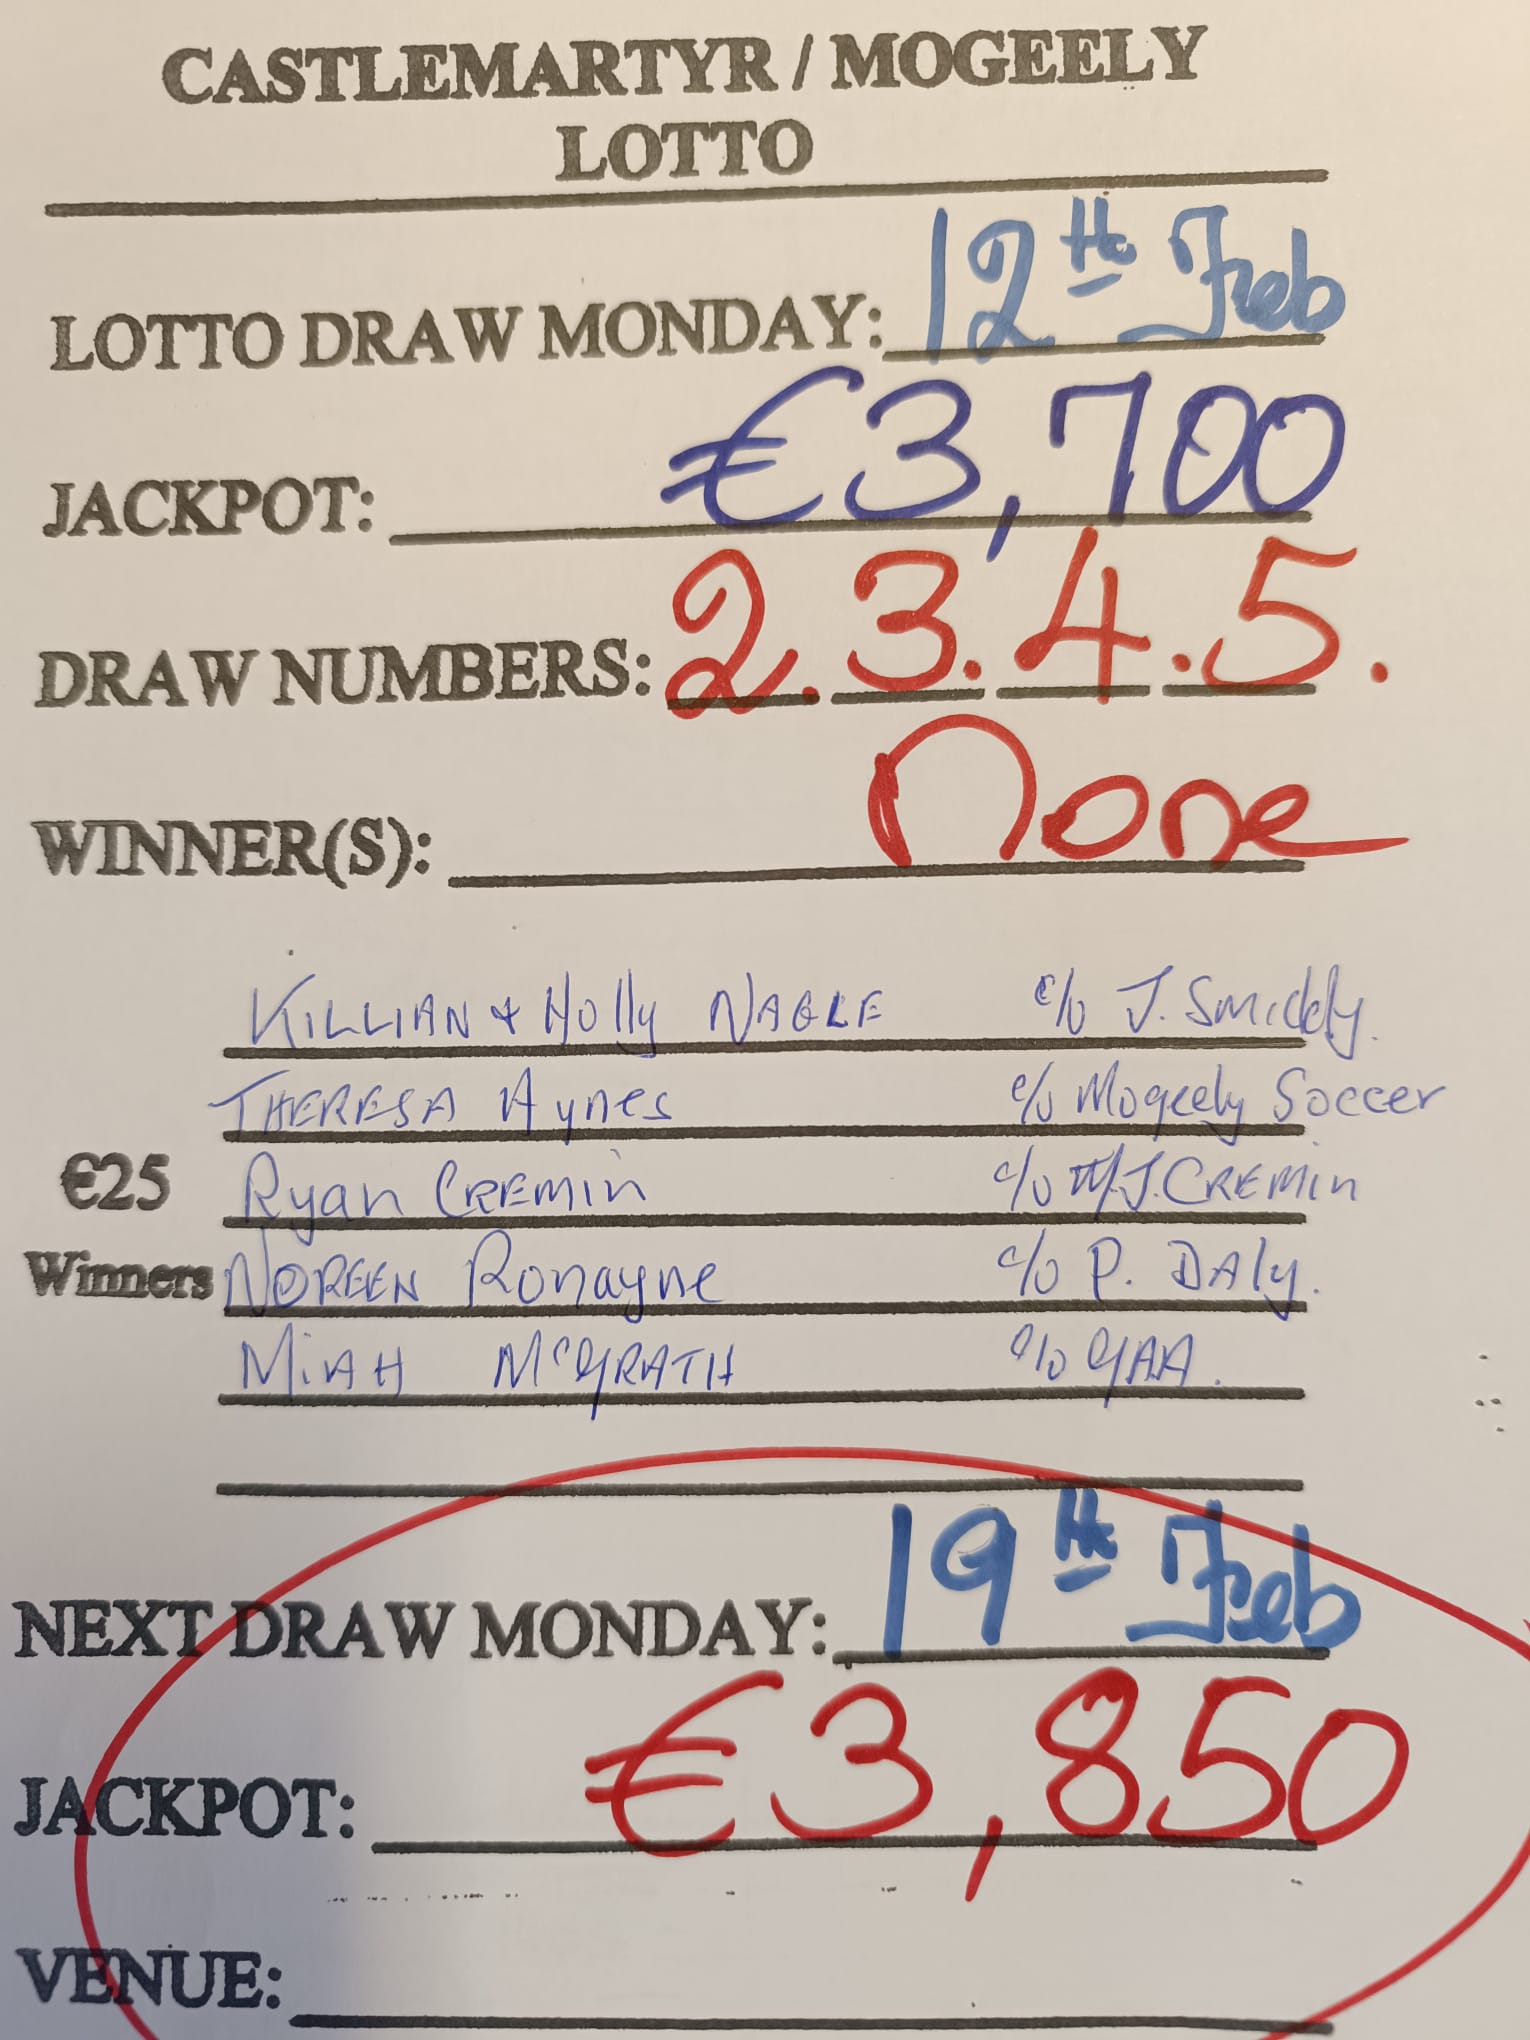 CASTLEMARTYR / MOGEELY
LOTTO
LOTTO DRAW MONDAY: 12th Feb
JACKPOT: €3,700
DRAW NUMBERS: 2. 3. 4. 5.
WINNER(S): none
KILLIAN + Holly NAGLE c/o J. Smiddy.
THERESA Hynes c/o Mogeely Soccer
€25 Ryan CREMIN c/o M/J. CREMIN
Winners NOREEN Ronayne c/o P. DAly.
MiAH McGRATH c/o GAA.
NEXT DRAW MONDAY: 19th Feb
JACKPOT: €3,850
VENUE: